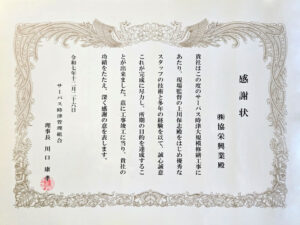 感謝状
㈱協栄興業殿
貴社はこの度のサーパス時津大規模修繕工事に
あたり、現場監督の上川保志殿をはじめ優秀な
スタッフの技術と多年の経験を以て、誠心誠意
これが完成に尽力し、所期の目的を達成するこ
とが出来ました。茲に工事竣工に当り、貴社の
功績をたたえ、深く感謝の意を表します。
令和七年十二月二十六日
サーパス時津管理組合
理事長 川口 康孝